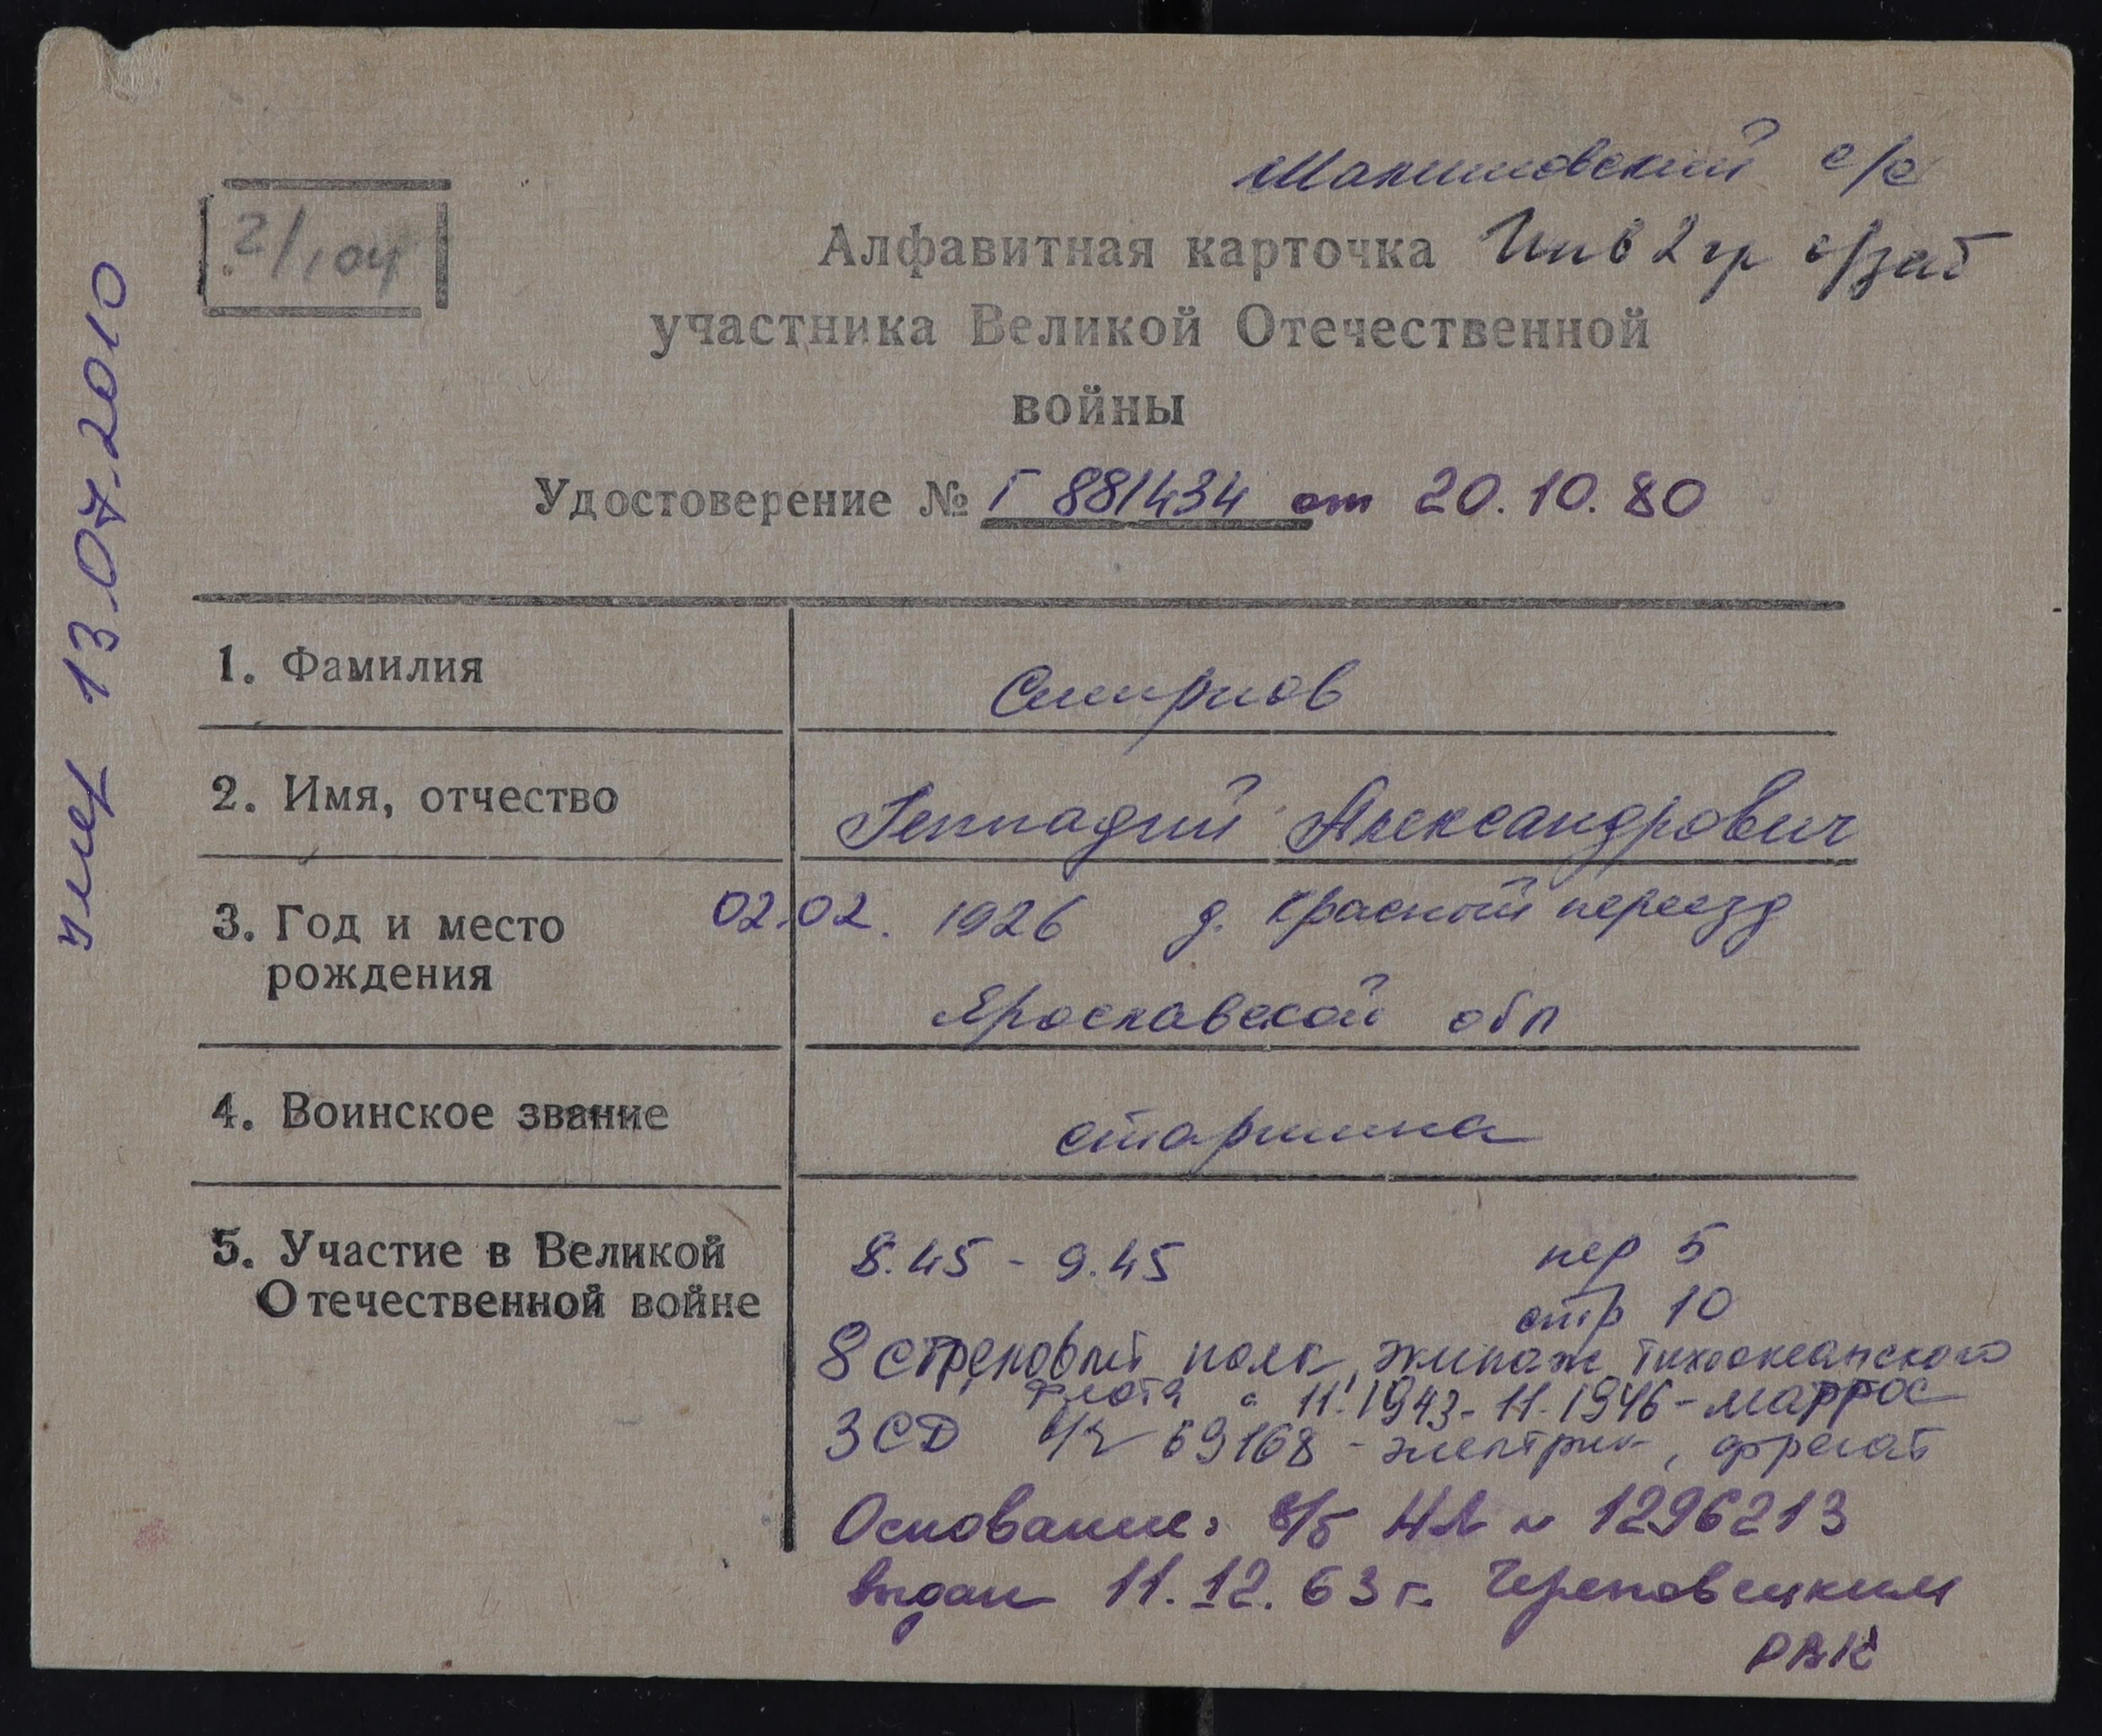 с/с
2/104
Алфавитная карточка Инв 2 гр о/заб
участника Великой Отечественной
войны
Удостоверение № Г 881434 от 20.10.80
умер 13.07.2010
1. Фамилия Смирнов
2. Имя, отчество Геннадий Александрович
3. Год и место 02.02. 1926 д. Красный переезд
рождения Ярославской обл
4. Воинское звание старшина
5. Участие в Великой 8.45 - 9.45 пер 5
Отечественной войне стр 10
8 стрелковый полк, экипаж Тихоокеанского
флота с 11.1943-11.1946-матрос
3 СД в/ч 69168 - электрик, фрегат
Основание: в/б НЛ № 1296213
выдан 11.12.63 г. Череповецким
РВК